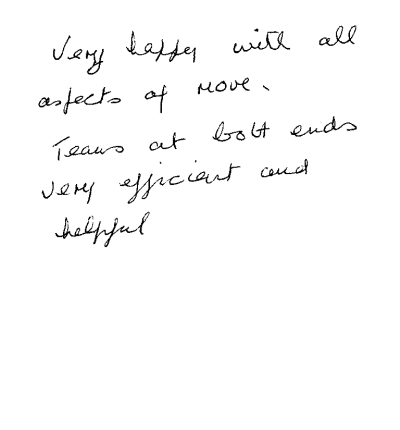 Very happy with all
aspects of move.
Teams at both ends
very efficient and
helpful